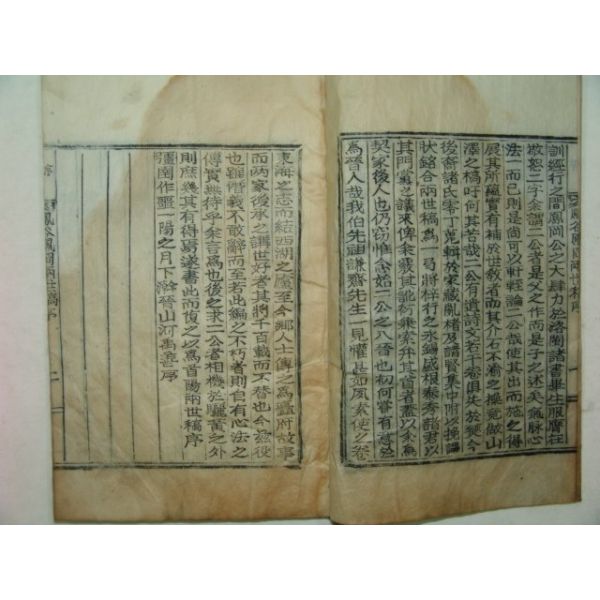 訓經行之間鳳岡公之大肆力於洛閩諸書畢生服膺在
敬恕二字余謂二公者是父之作而是子之述矣氣脉心
法一而已則是尙可以軒輊論二公哉使其出而施之得
展其所蘊實有補於世敎者而其介石不渝之操竟做山
澤之槁吁何其苦哉二公有遺詩文若干卷俱失於爕今
後裔諸氏零丁蒐輯於家藏亂楮及諸賢集中附以挽誄
狀銘合兩世稿爲一弓將梓行之永錫國根泰秀諸君以
其門黨之議來俾余
契家後人也仍竊惟念始二公之入晉也初何嘗有意於
爲晉人哉我伯先祖謙齋先生一見懽甚如夙素使之卷
東海之志而結西湖之廬至今鄕人士傳之爲蓋府故事
而兩家後承之講世好者其將千百載而不替也今玆役
也雖僭義不敢辭而至若此編之不朽者則自有心法之
傳實無待乎余言爲也後之求二公者相機於驪黃之外
則庶幾其有得焉遂書此而復之以爲首陽兩世稿序
彊圉作噩一陽之月下澣晉山河禹善序